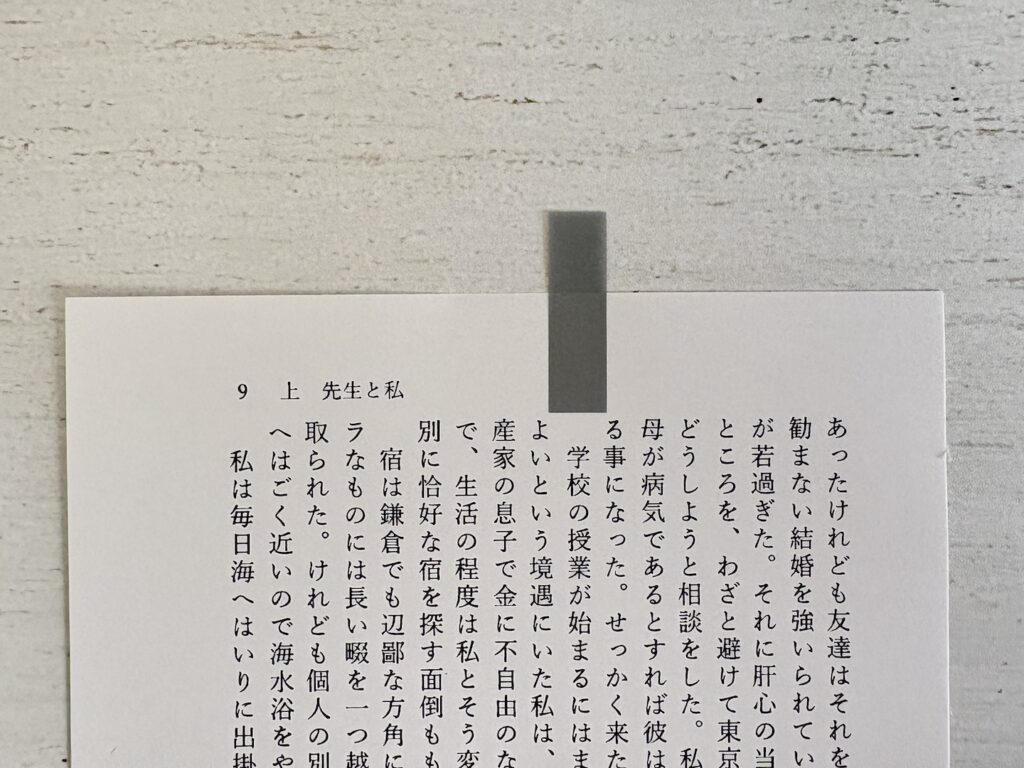 9　上　先生と私
あったけれども友達はそれを
勧まない結婚を強いられてい
が若過ぎた。それに肝心の当
ところを、わざと避けて東京
どうしようと相談をした。私
母が病気であるとすれば彼は
る事になった。せっかく来た
学校の授業が始まるにはま
よいという境遇にいた私は、
産家の息子で金に不自由のな
で、生活の程度は私とそう変
別に恰好な宿を探す面倒もも
宿は鎌倉でも辺鄙な方角に
ラなものには長い畷を一つ越
取られた。けれども個人の別
へはごく近いので海水浴をや
私は毎日海へはいりに出掛